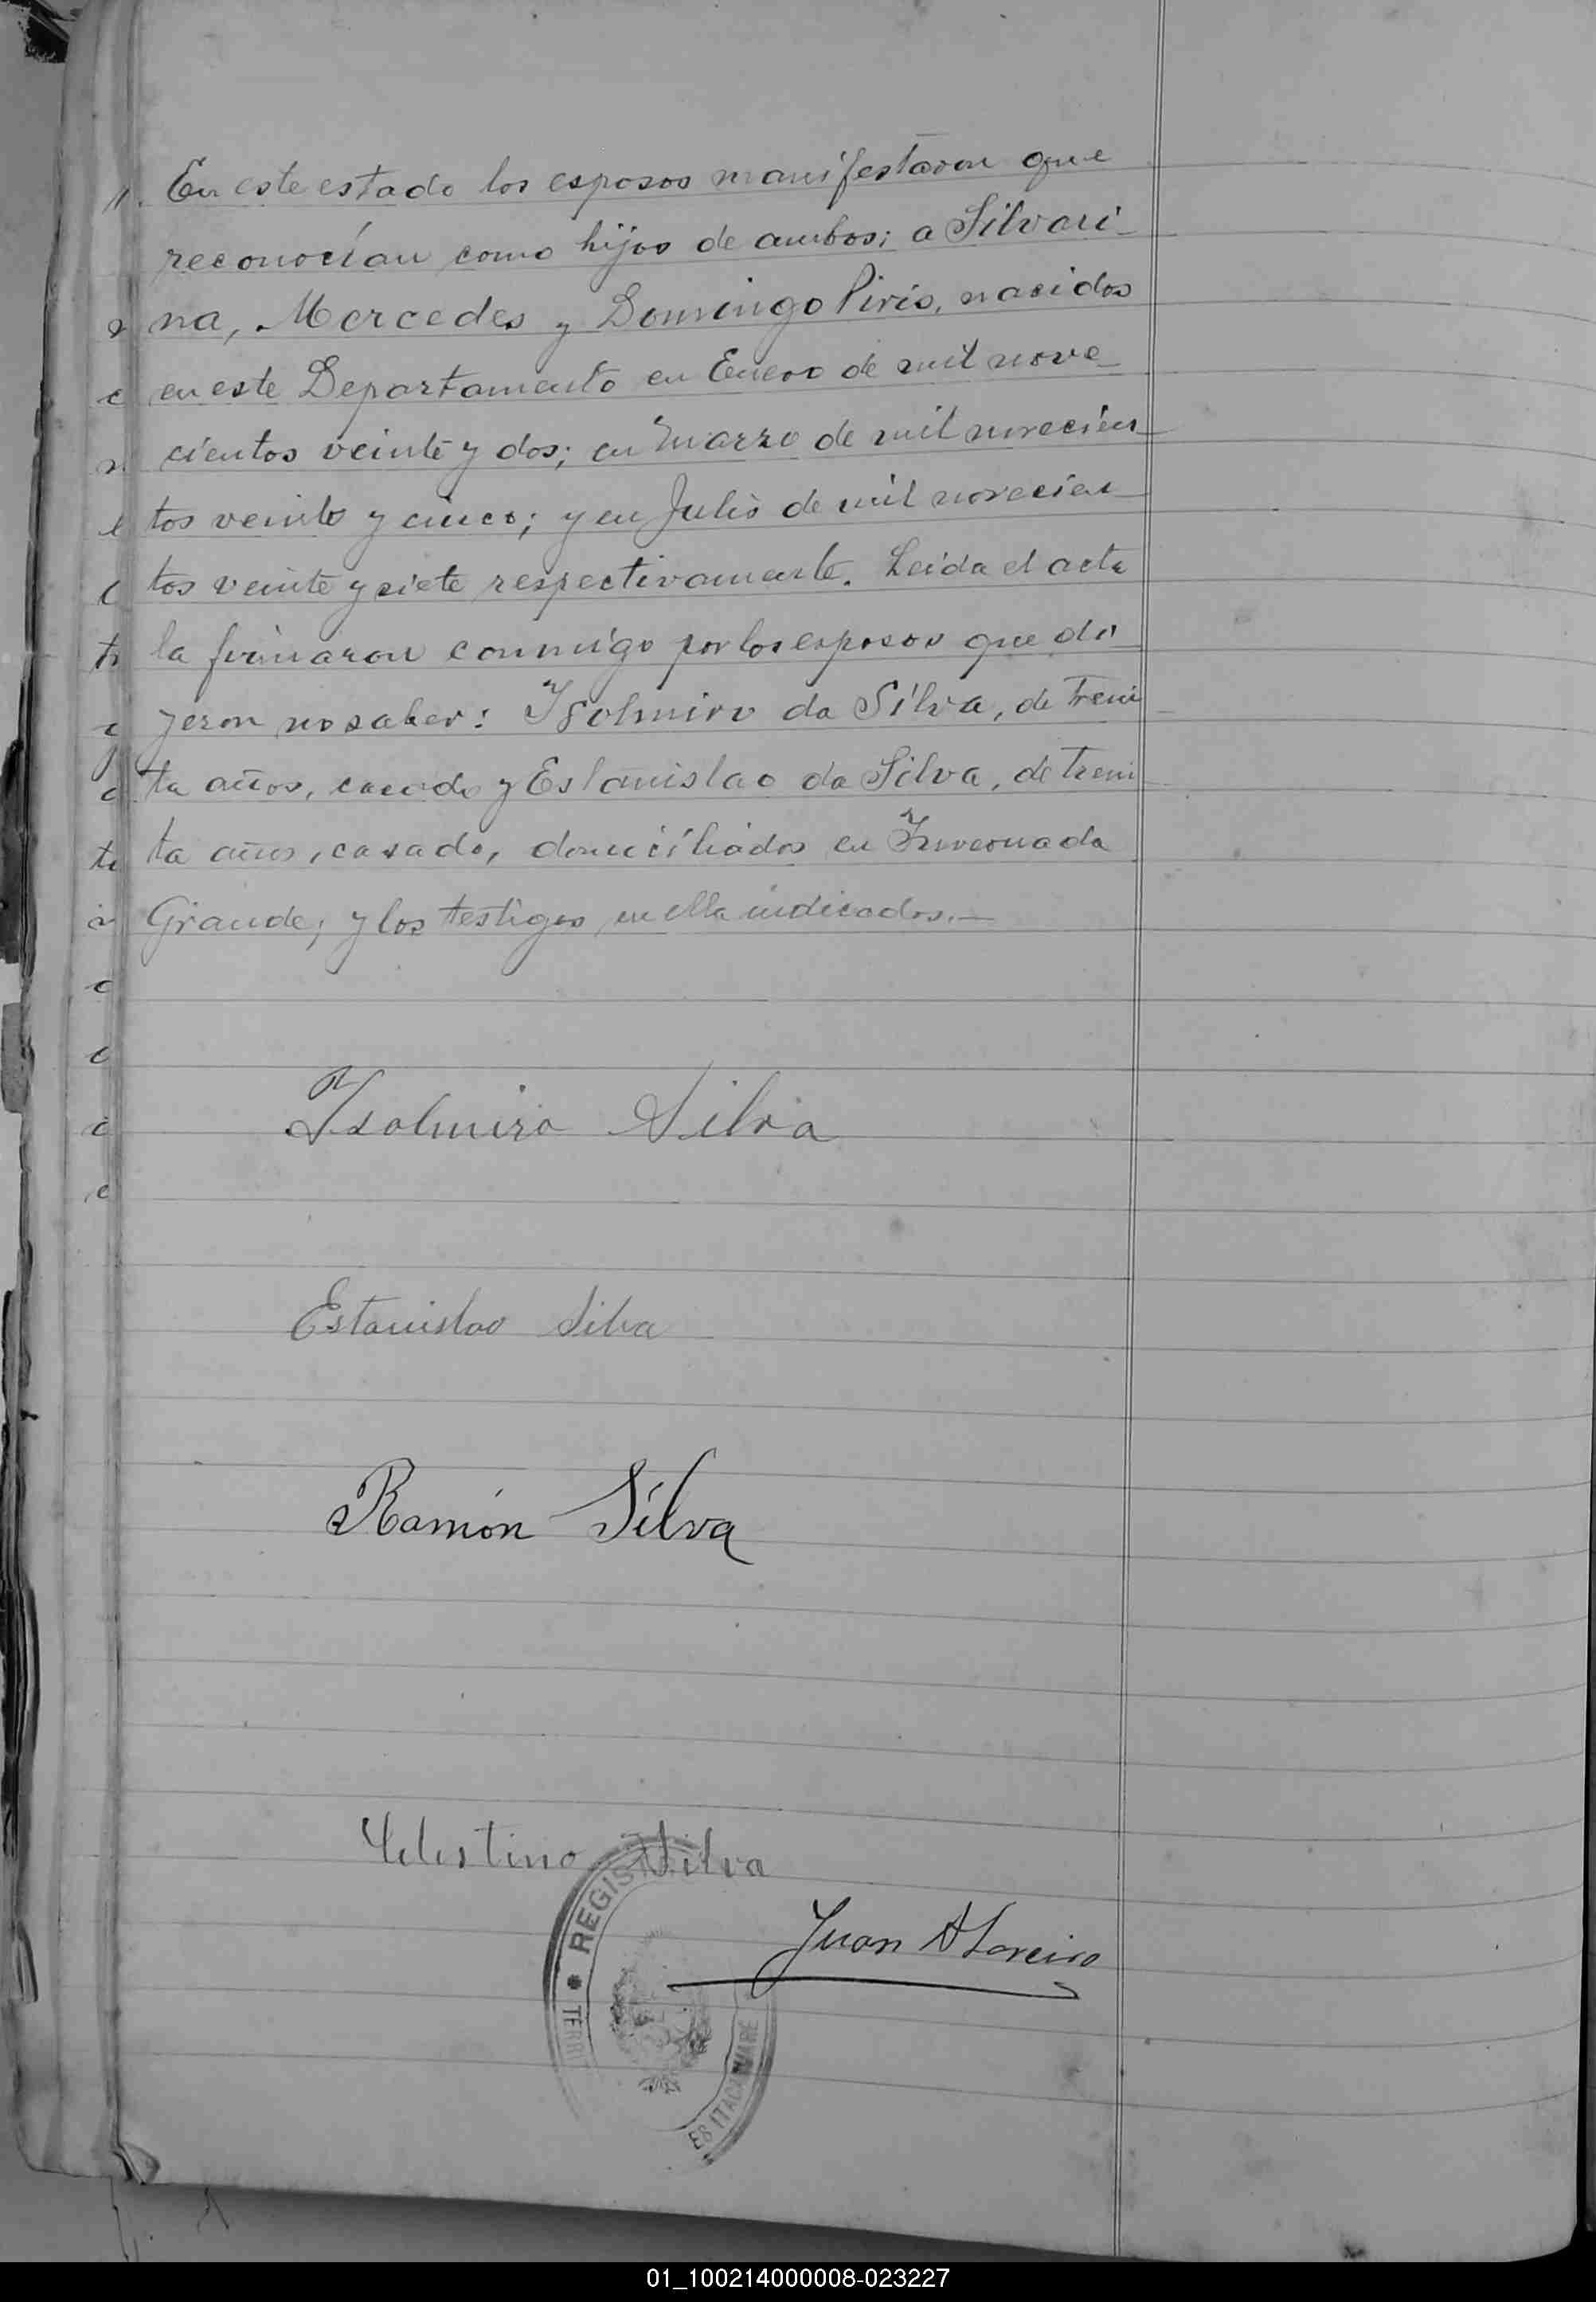 En este estado los esposos manifestaron que
reconocían como hijos de ambos; a Silvari-
na, Mercedes y Domingo Piris, nacidos
en este Departamento en Enero de mil nove-
cientos veinte y dos; en Marzo de mil novecien-
tos veinte y cinco; y en Julio de mil novecien-
tos veinte y siete respectivamente. Leida el acta
la firmaron conmigo por los esposos que di-
jeron no saber: Ysolmiro da Silva, de trein-
ta años, casado y Estanislao da Silva, de trein-
ta años, casado, domiciliados en Invernada
Grande, y los testigos en ella indicados.—
Ysolmiro Silva
Estanislao Silva
Ramón Silva
Celestino Silva
REGIS
Juan A
TERRI
ES ITACARUARE
01_100214000008-023227